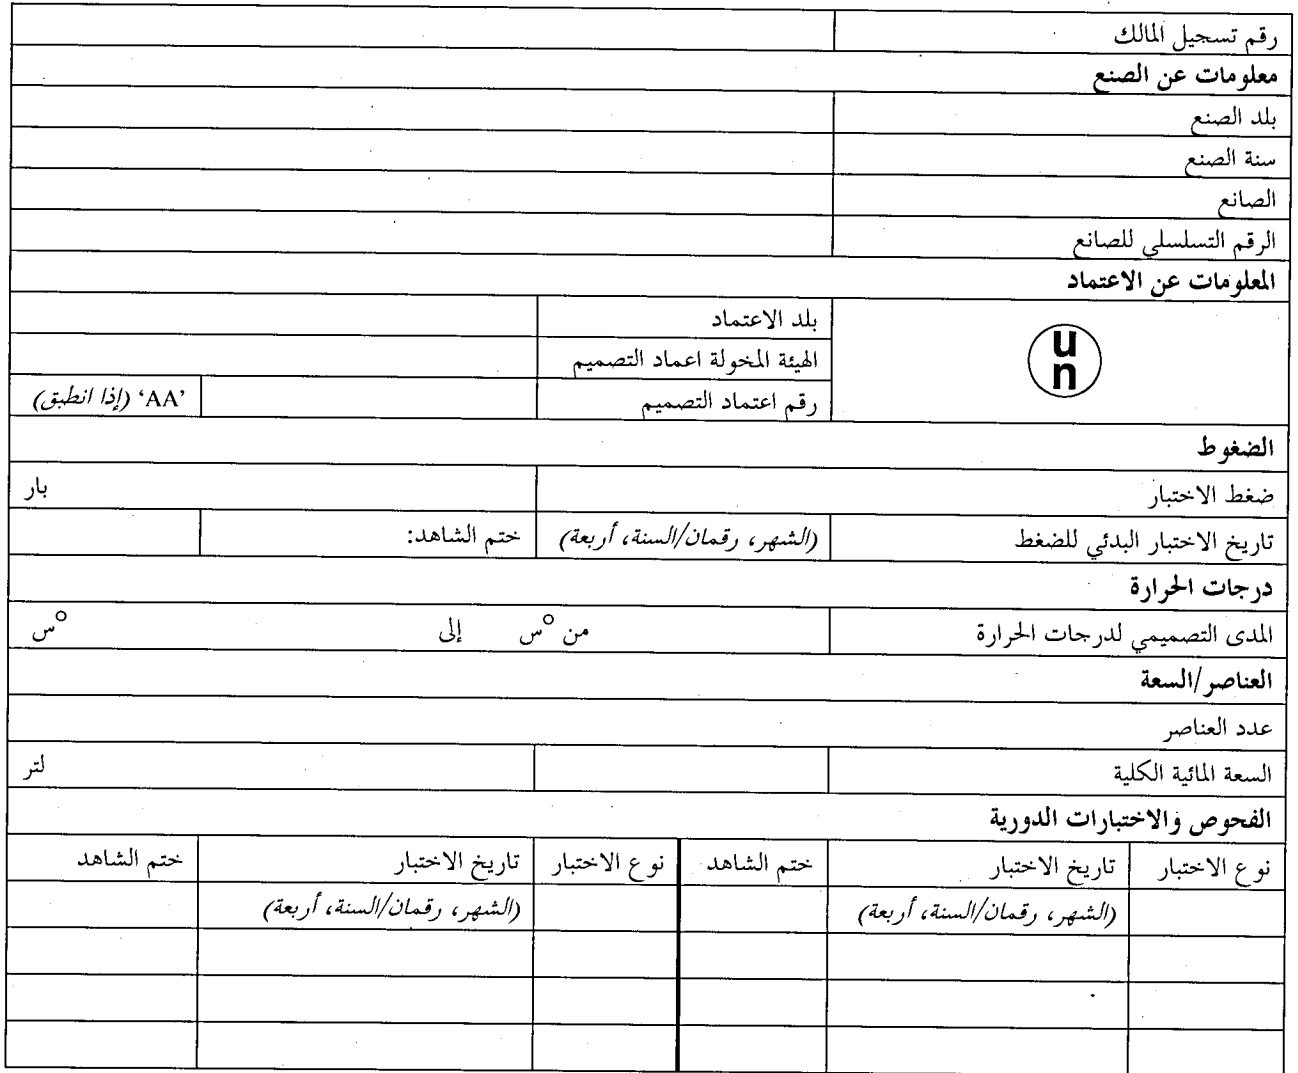 رقم تسجيل المالك
معلومات عن الصنع
بلد الصنع
سنة الصنع
الصانع
الرقم التسلسلي للصانع
المعلومات عن الاعتماد
un
بلد الاعتماد
الهيئة المخولة اعماد التصميم
رقم اعتماد التصميم
'AA' (إذا انطبق)
الضغوط
ضغط الاختبار بار
تاريخ الاختبار البدئي للضغط (الشهر، رقمان/السنة، أربعة) ختم الشاهد:
درجات الحرارة
المدى التصميمي لدرجات الحرارة من °س إلى °س
العناصر/السعة
عدد العناصر
السعة المائية الكلية لتر
الفحوص والاختبارات الدورية
نوع الاختبار تاريخ الاختبار ختم الشاهد نوع الاختبار تاريخ الاختبار ختم الشاهد
(الشهر، رقمان/السنة، أربعة) (الشهر، رقمان/السنة، أربعة)